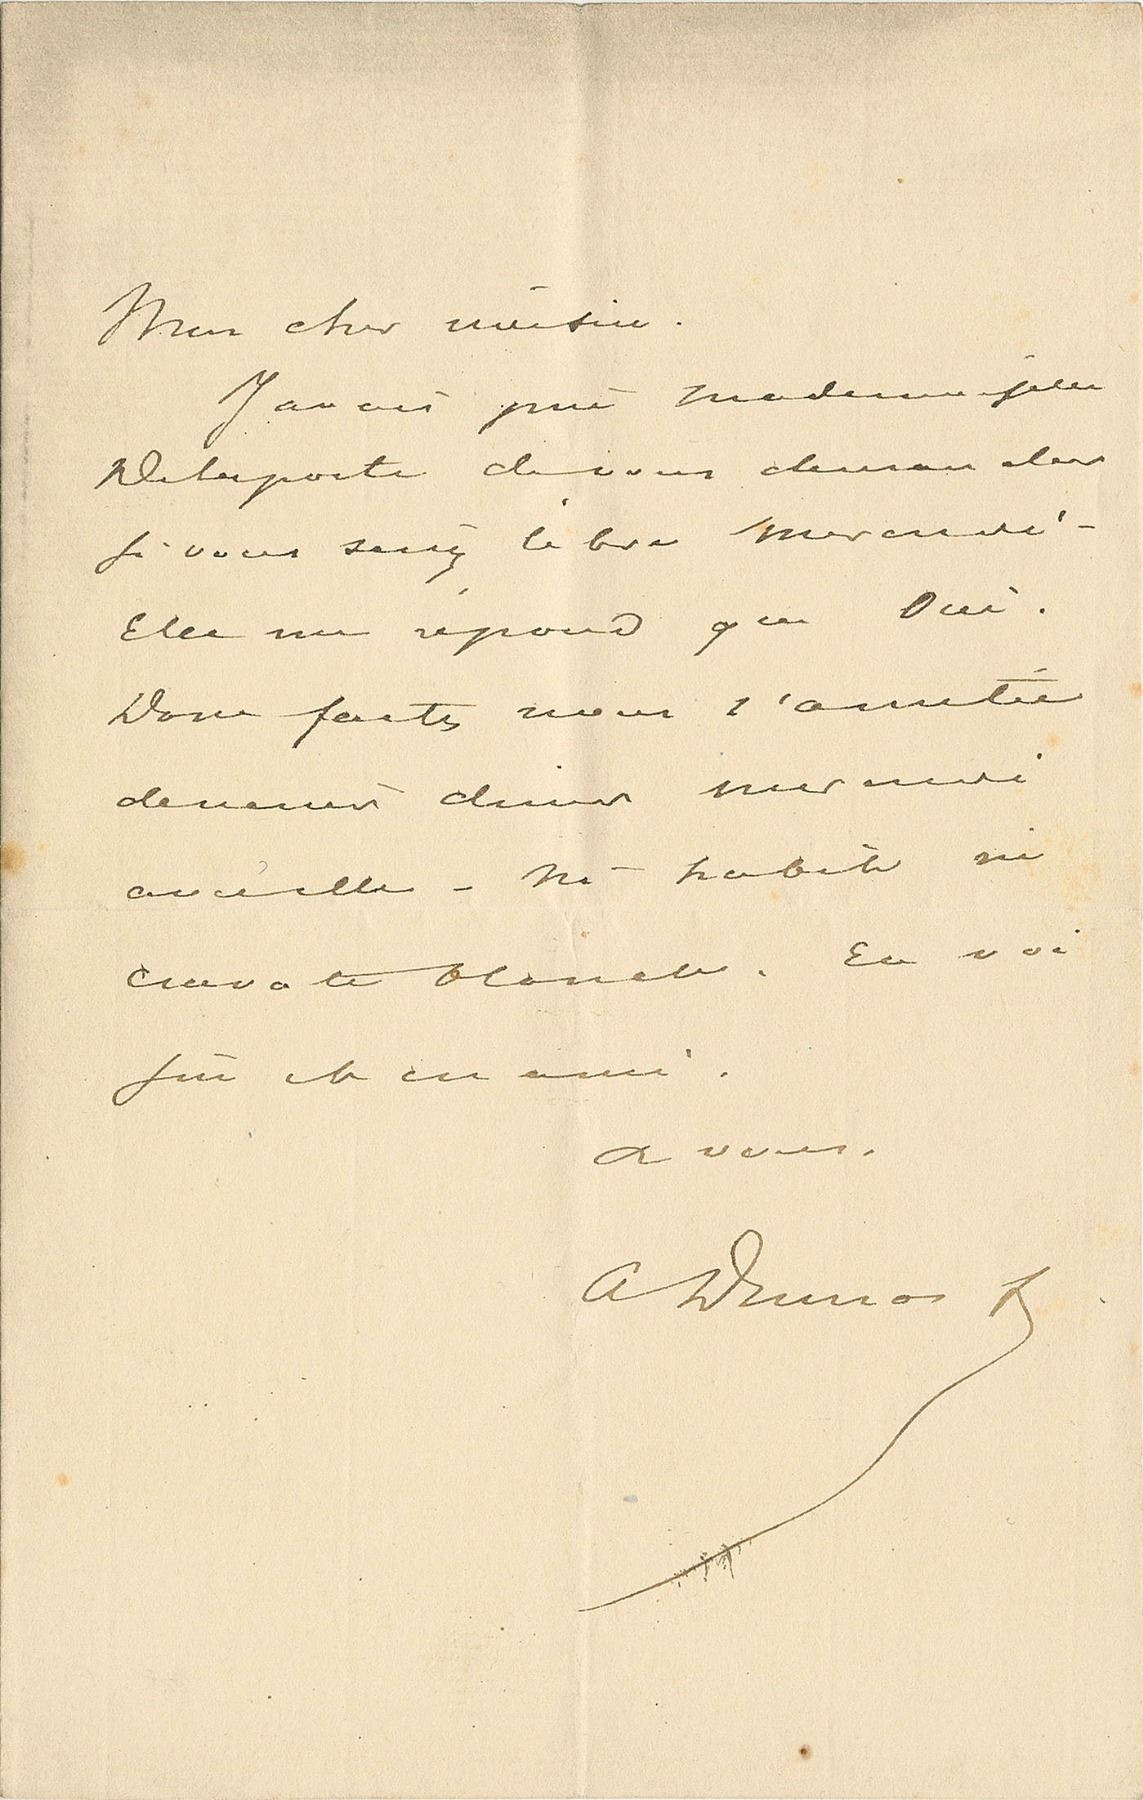 Mon cher voisin.
J'avais prié Mademoiselle
Delaporte de vous demander
si vous seriez libre mercredi -
Elle me répond que Oui.
Donc faites nous l'amitié
de venir diner mercredi
avec elle - Ni habit ni
cravate blanche. En voi
sin et en ami.
a vous.
A Dumas f